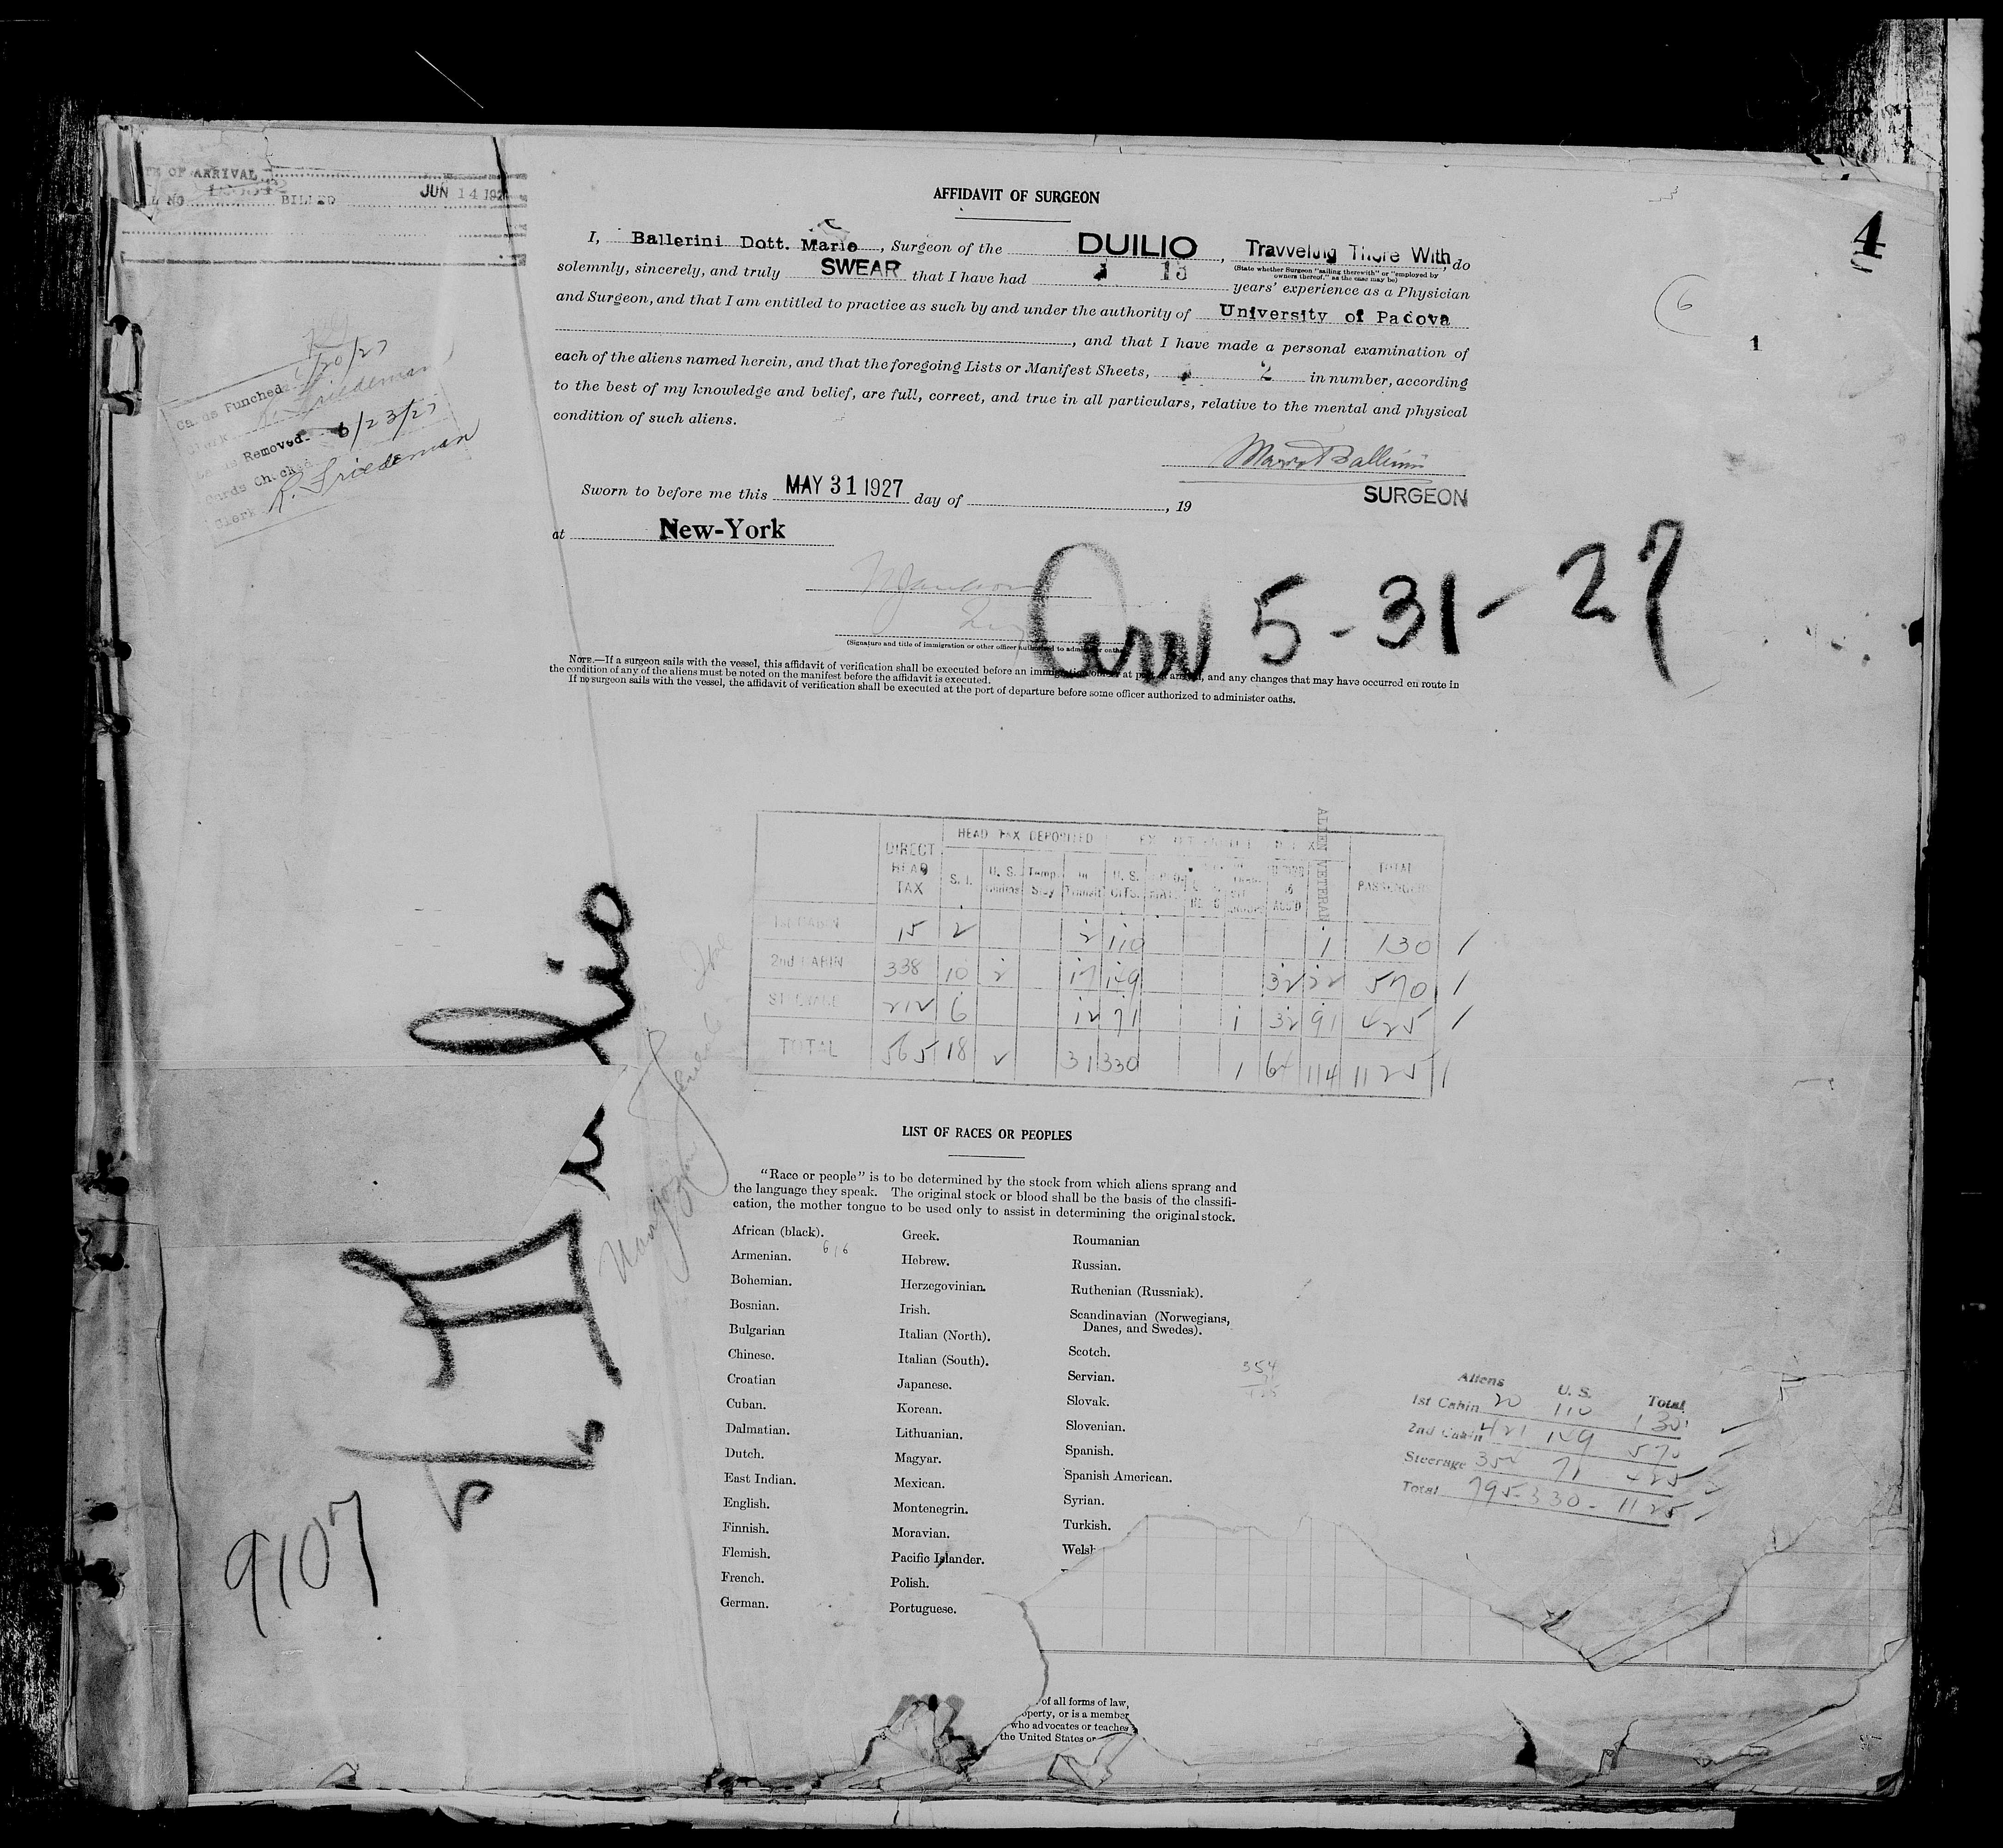 OF ARRIVAL
NO. BILLED JUN 14 192
4
1
6
AFFIDAVIT OF SURGEON
I, Ballerini Dott. Mario, Surgeon of the DUILIO, Travveling There With, do
(State whether Surgeon "sailing therewith" or "employed by
owners thereof," as the case may be)
solemnly, sincerely, and truly SWEAR that I have had 13 years' experience as a Physician
and Surgeon, and that I am entitled to practice as such by and under the authority of University of Padova
, and that I have made a personal examination of
each of the aliens named herein, and that the foregoing Lists or Manifest Sheets, 2 in number, according
to the best of my knowledge and belief, are full, correct, and true in all particulars, relative to the mental and physical
condition of such aliens.
SURGEON
Sworn to before me this MAY 31 1927 day of , 19
at New-York
(Signature and title of immigration or other officer authorized to administer oaths)
Arr 5-31-27
NOTE.—If a surgeon sails with the vessel, this affidavit of verification shall be executed before an immigration officer at port of arrival, and any changes that may have occurred en route in
the condition of any of the aliens must be noted on the manifest before the affidavit is executed.
If no surgeon sails with the vessel, the affidavit of verification shall be executed at the port of departure before some officer authorized to administer oaths.
Cards Punched 6/20/27
Clerk Friedeman
Cards Removed 6/23/27
Cards Checked
Clerk R. Friedeman
HEAD TAX DEPOSITED
DIRECT HEAD TAX S.I. U.S. Claims Temp. Stay In Transit U.S. CITS. ALIEN VETERAN TOTAL PASSENGERS
1st CABIN 15 2 2 110 1 130
2nd CABIN 338 10 2 17 149 32 22 570
STEERAGE 212 6 12 71 1 32 91 425
TOTAL 565 18 2 31 330 1 64 114 1125
Duilio
9107
LIST OF RACES OR PEOPLES
"Race or people" is to be determined by the stock from which aliens sprang and
the language they speak. The original stock or blood shall be the basis of the classifi-
cation, the mother tongue to be used only to assist in determining the original stock.
African (black).
Armenian.
616
Bohemian.
Bosnian.
Bulgarian
Chinese.
Croatian
Cuban.
Dalmatian.
Dutch.
East Indian.
English.
Finnish.
Flemish.
French.
German.
Greek.
Hebrew.
Herzegovinian.
Irish.
Italian (North).
Italian (South).
Japanese.
Korean.
Lithuanian.
Magyar.
Mexican.
Montenegrin.
Moravian.
Pacific Islander.
Polish.
Portuguese.
Roumanian
Russian.
Ruthenian (Russniak).
Scandinavian (Norwegians,
Danes, and Swedes).
Scotch.
Servian.
Slovak.
Slovenian.
Spanish.
Spanish American.
Syrian.
Turkish.
Welsh
354
Aliens U. S. Total
1st Cabin 20 110 130
2nd Cabin 421 149 570
Steerage 354 71 425
Total 795 - 330 - 1125
of all forms of law,
operty, or is a member
who advocates or teaches
the United States or